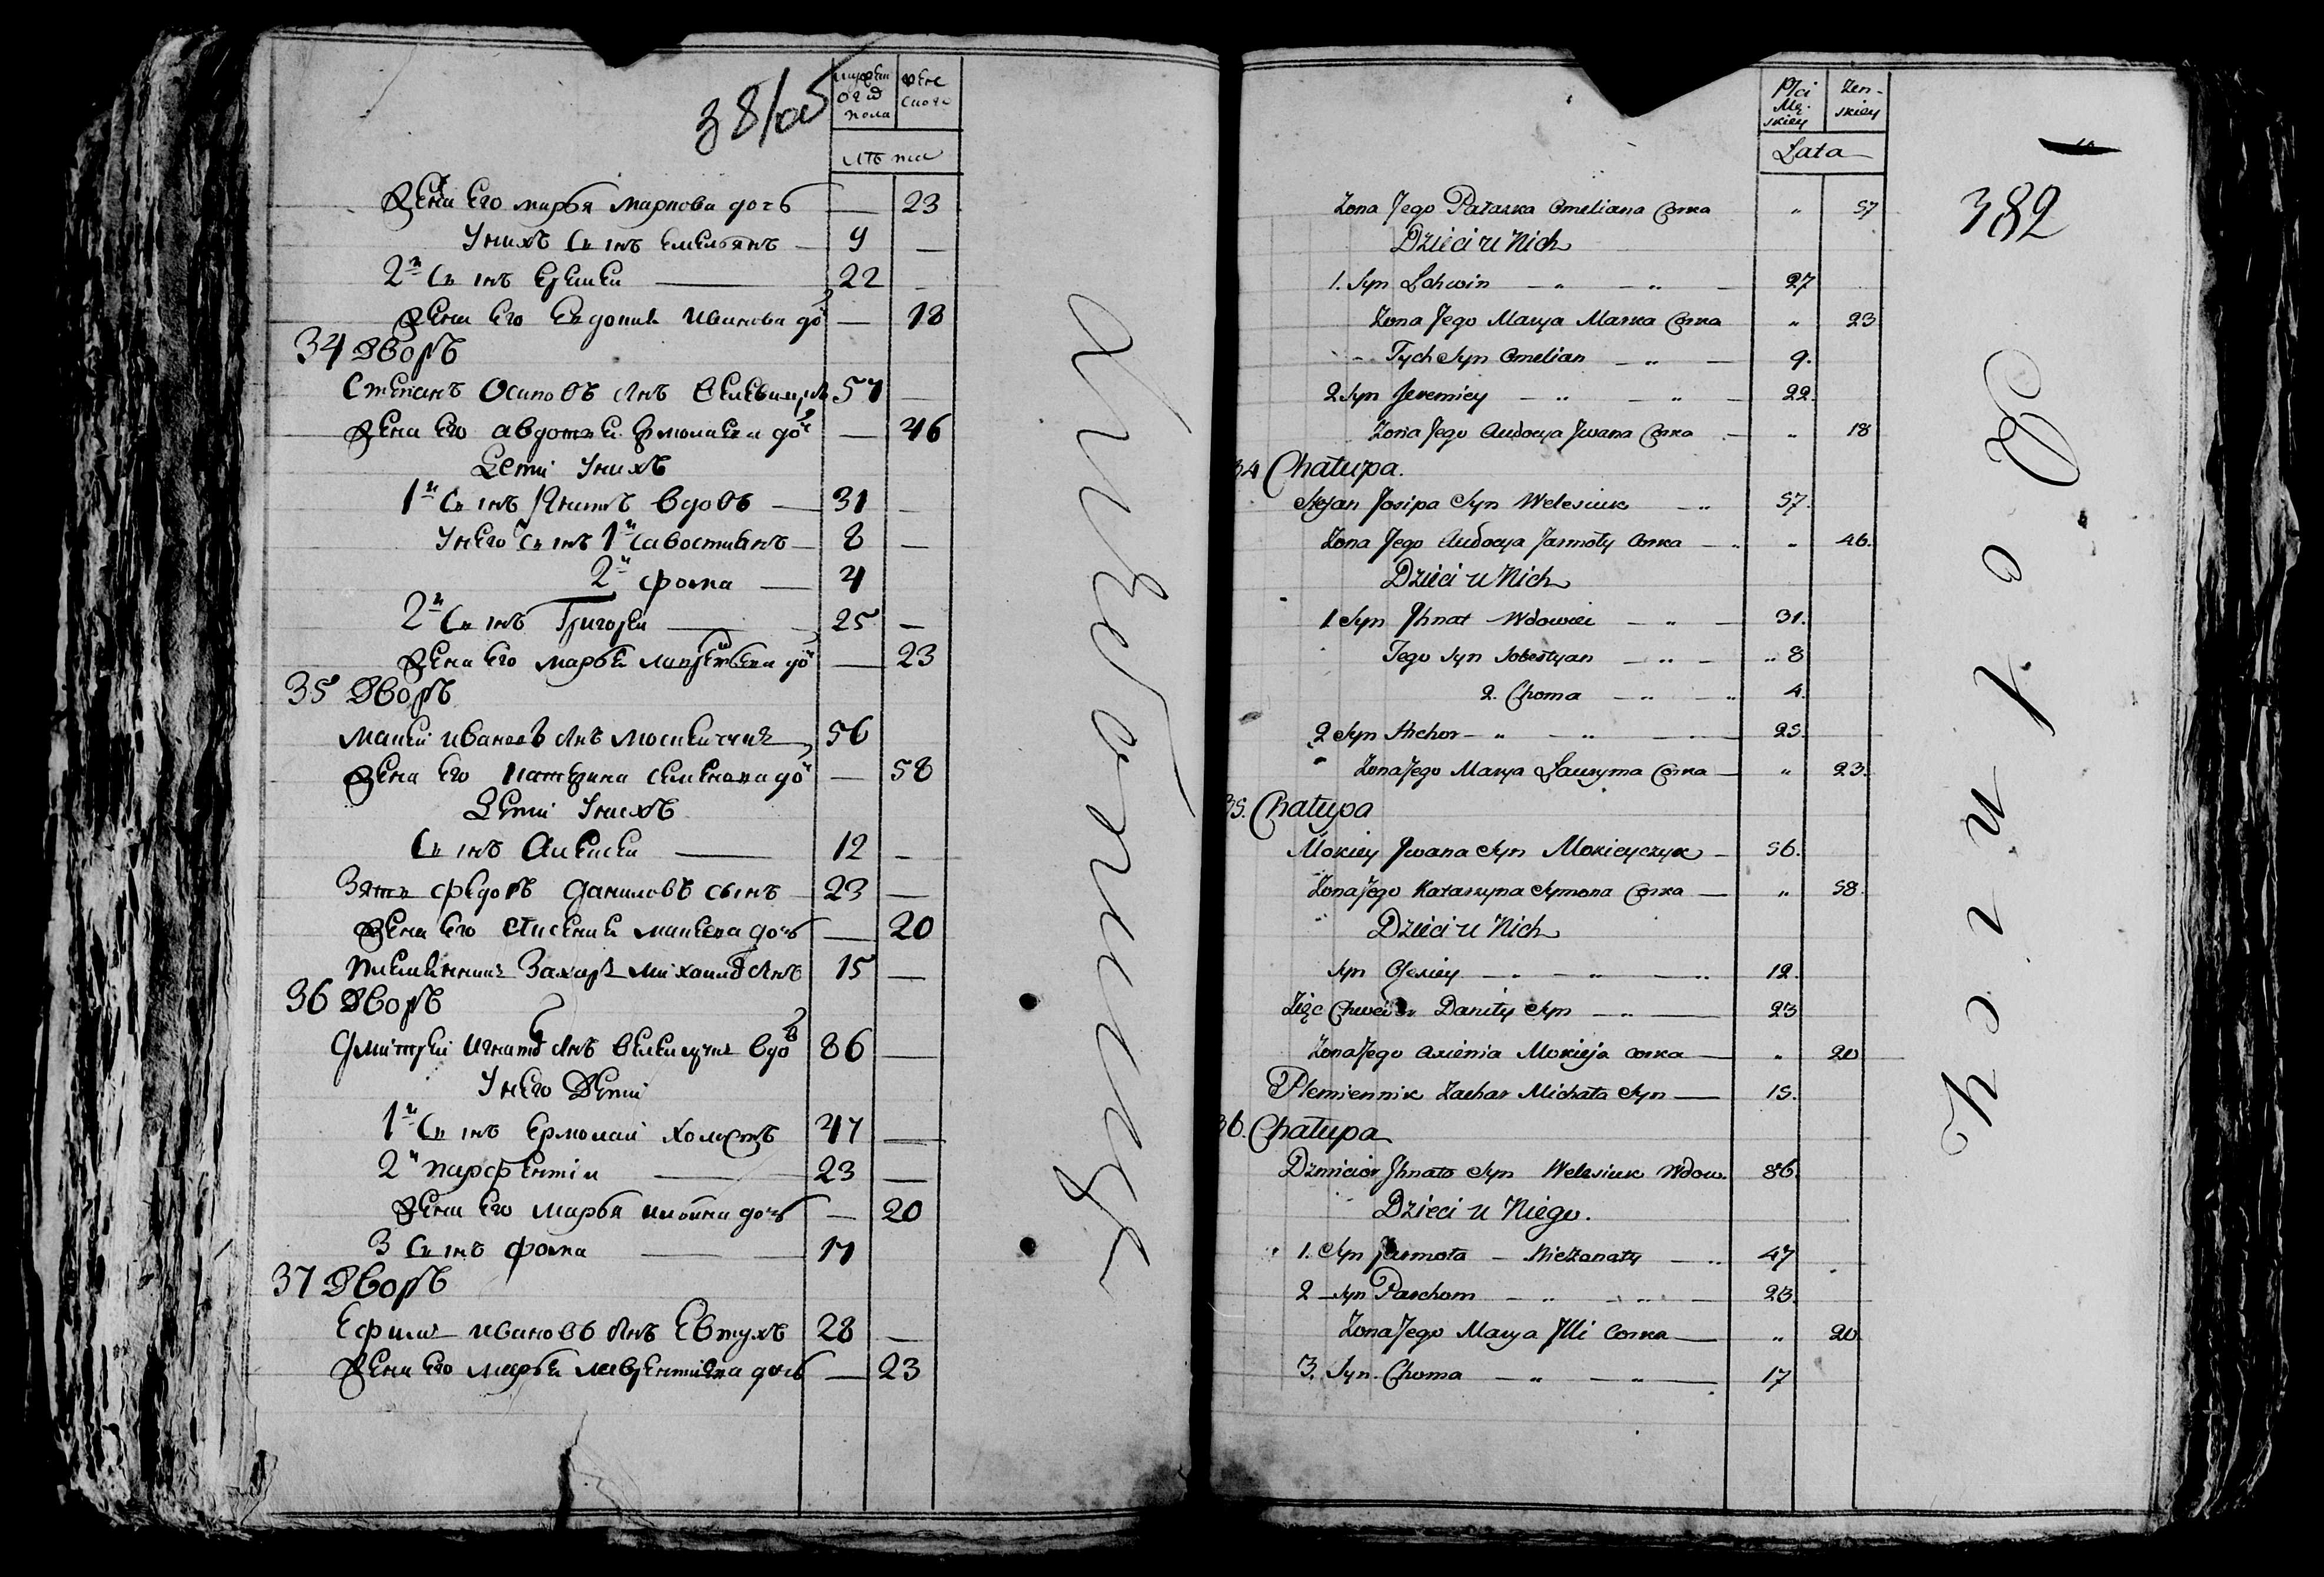 381об
мужеска
ого
пола
женс
ского
лѣта
Жена Его марья маркова дочь — 23
Уних Сынъ Емельянъ — 9 —
2й Сынъ Еремеи — 22 —
Жена Его Евдокия Иванова до — 18
34 Дворъ
Степанъ Осиповъ снъ 57 —
Жена Его авдотья Ермолаева до — 46
Дети Унихъ
1й Сынъ Игнатъ вдовъ — 31 —
Унего Сынъ 1й Савостиянъ — 8 —
2й фома — 4
2й Сынъ Григореи — 25 —
Жена Его марья до — 23
35 Дворъ
макей ивановъ снъ 56
Жена Его катерина семенова до — 58
Дети Унихъ
Сынъ Алексеи — 12 —
Зять федоръ даниловъ сынъ 23 —
Жена Его Аксения макеева дочь — 20
племянникъ Захаръ михаил снъ 15 —
36 Дворъ
дмитреи Игнатов снъ вдо 86 —
Унего Дети
1й Сынъ Ермолай холостъ 47 —
2й парфентiи — 23 —
Жена Его марья илина дочь — 20
3 Сынъ фома — 17
37 Дворъ
Ефимъ ивановъ снъ Евтухъ 28 —
Жена Его марья лаврентиева дочь — 23
Płci
Mę-
skiey
Żen-
skiey
Lata
382
Żona Jego Paraska Omeliana Corka „ 57
Dzieci u Nich
1. Syn Lohwin — „ — „ — 27
Żona Jego Marya Marka Corka „ 23
Tych Syn Omelian — „ — 9.
2 Syn Jeremiey — „ — „ — 22.
Żona Jego Audocya Jwana Corka — „ 18
34 Chałupa.
Stefan Josipa Syn Welesiuk — „ 57.
Żona Jego Audocya Jarmoły Corka — „ „ 46.
Dzieci u Nich
1 Syn Jhnat Wdowiec — „ — 31.
Jego Syn Sobestyan — „ — „ 8
2. Choma — „ — „ 4.
2 Syn Hrehor — „ — „ — 25.
Żona Jego Marya Lauryma Corka — „ 23.
35. Chałupa
Mokiey Jwana Syn Mokieyczyk — 56.
Żona Jego Kataryna Symona Corka — „ 58.
Dzieci u Nich
Syn Olexiey — „ — „ — „ 12.
Zięc Danily Syn — „ — 23
Żona Jego Axienia Mokieja Corka — „ 20
Plemiennik Zachar Michała Syn — 15.
36. Chałupa
Dzmicior Jhnata Syn Welesiuk Wdow. 86.
Dzieci u Niego.
1. Syn Jarmoła — Nieżonaty — „ 47
2 Syn Parchom — „ — „ — 23.
Żona Jego Marya Jlli Corka — „ 20.
3. Syn Choma — „ — „ — 17